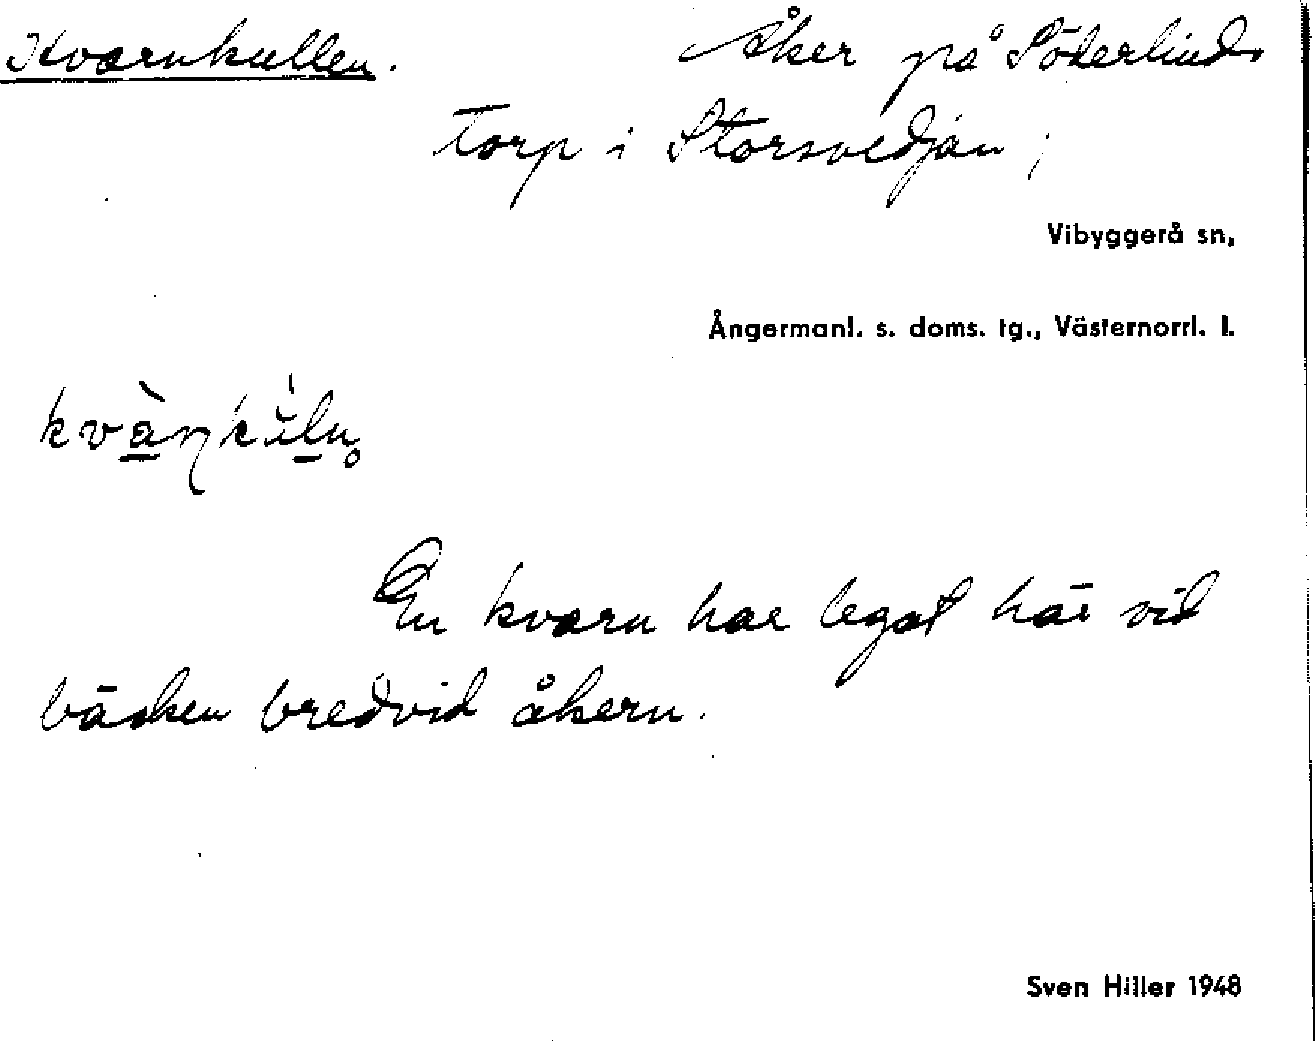 Kvarnkullen. Åker på Söderlinds
torp i Storsvedjan ;
Vibyggerå sn,
Ångermanl. s. doms. tg., Västernorrl. l.
En kvarn har legat här vid
bäcken bredvid åkern.
Sven Hiller 1948